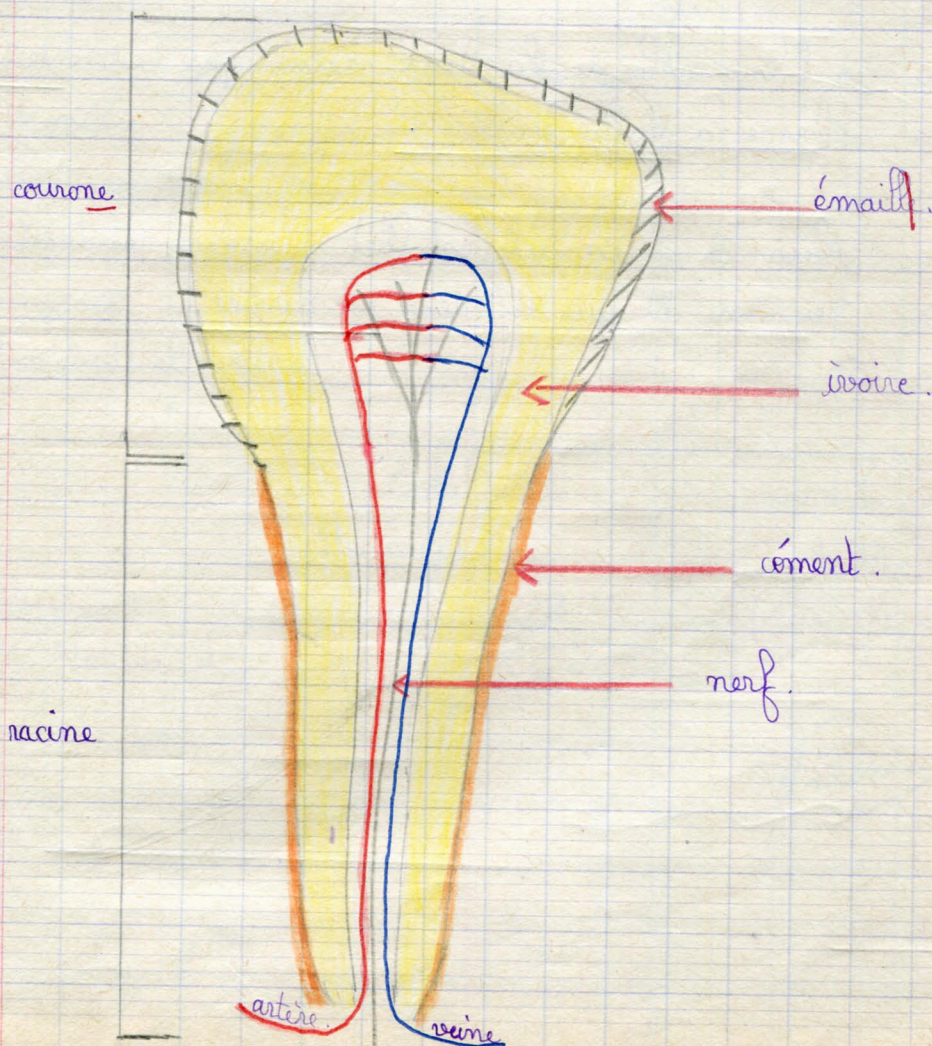 courone
émaill.
ivoire.
cément.
nerf.
racine
artère.
veine